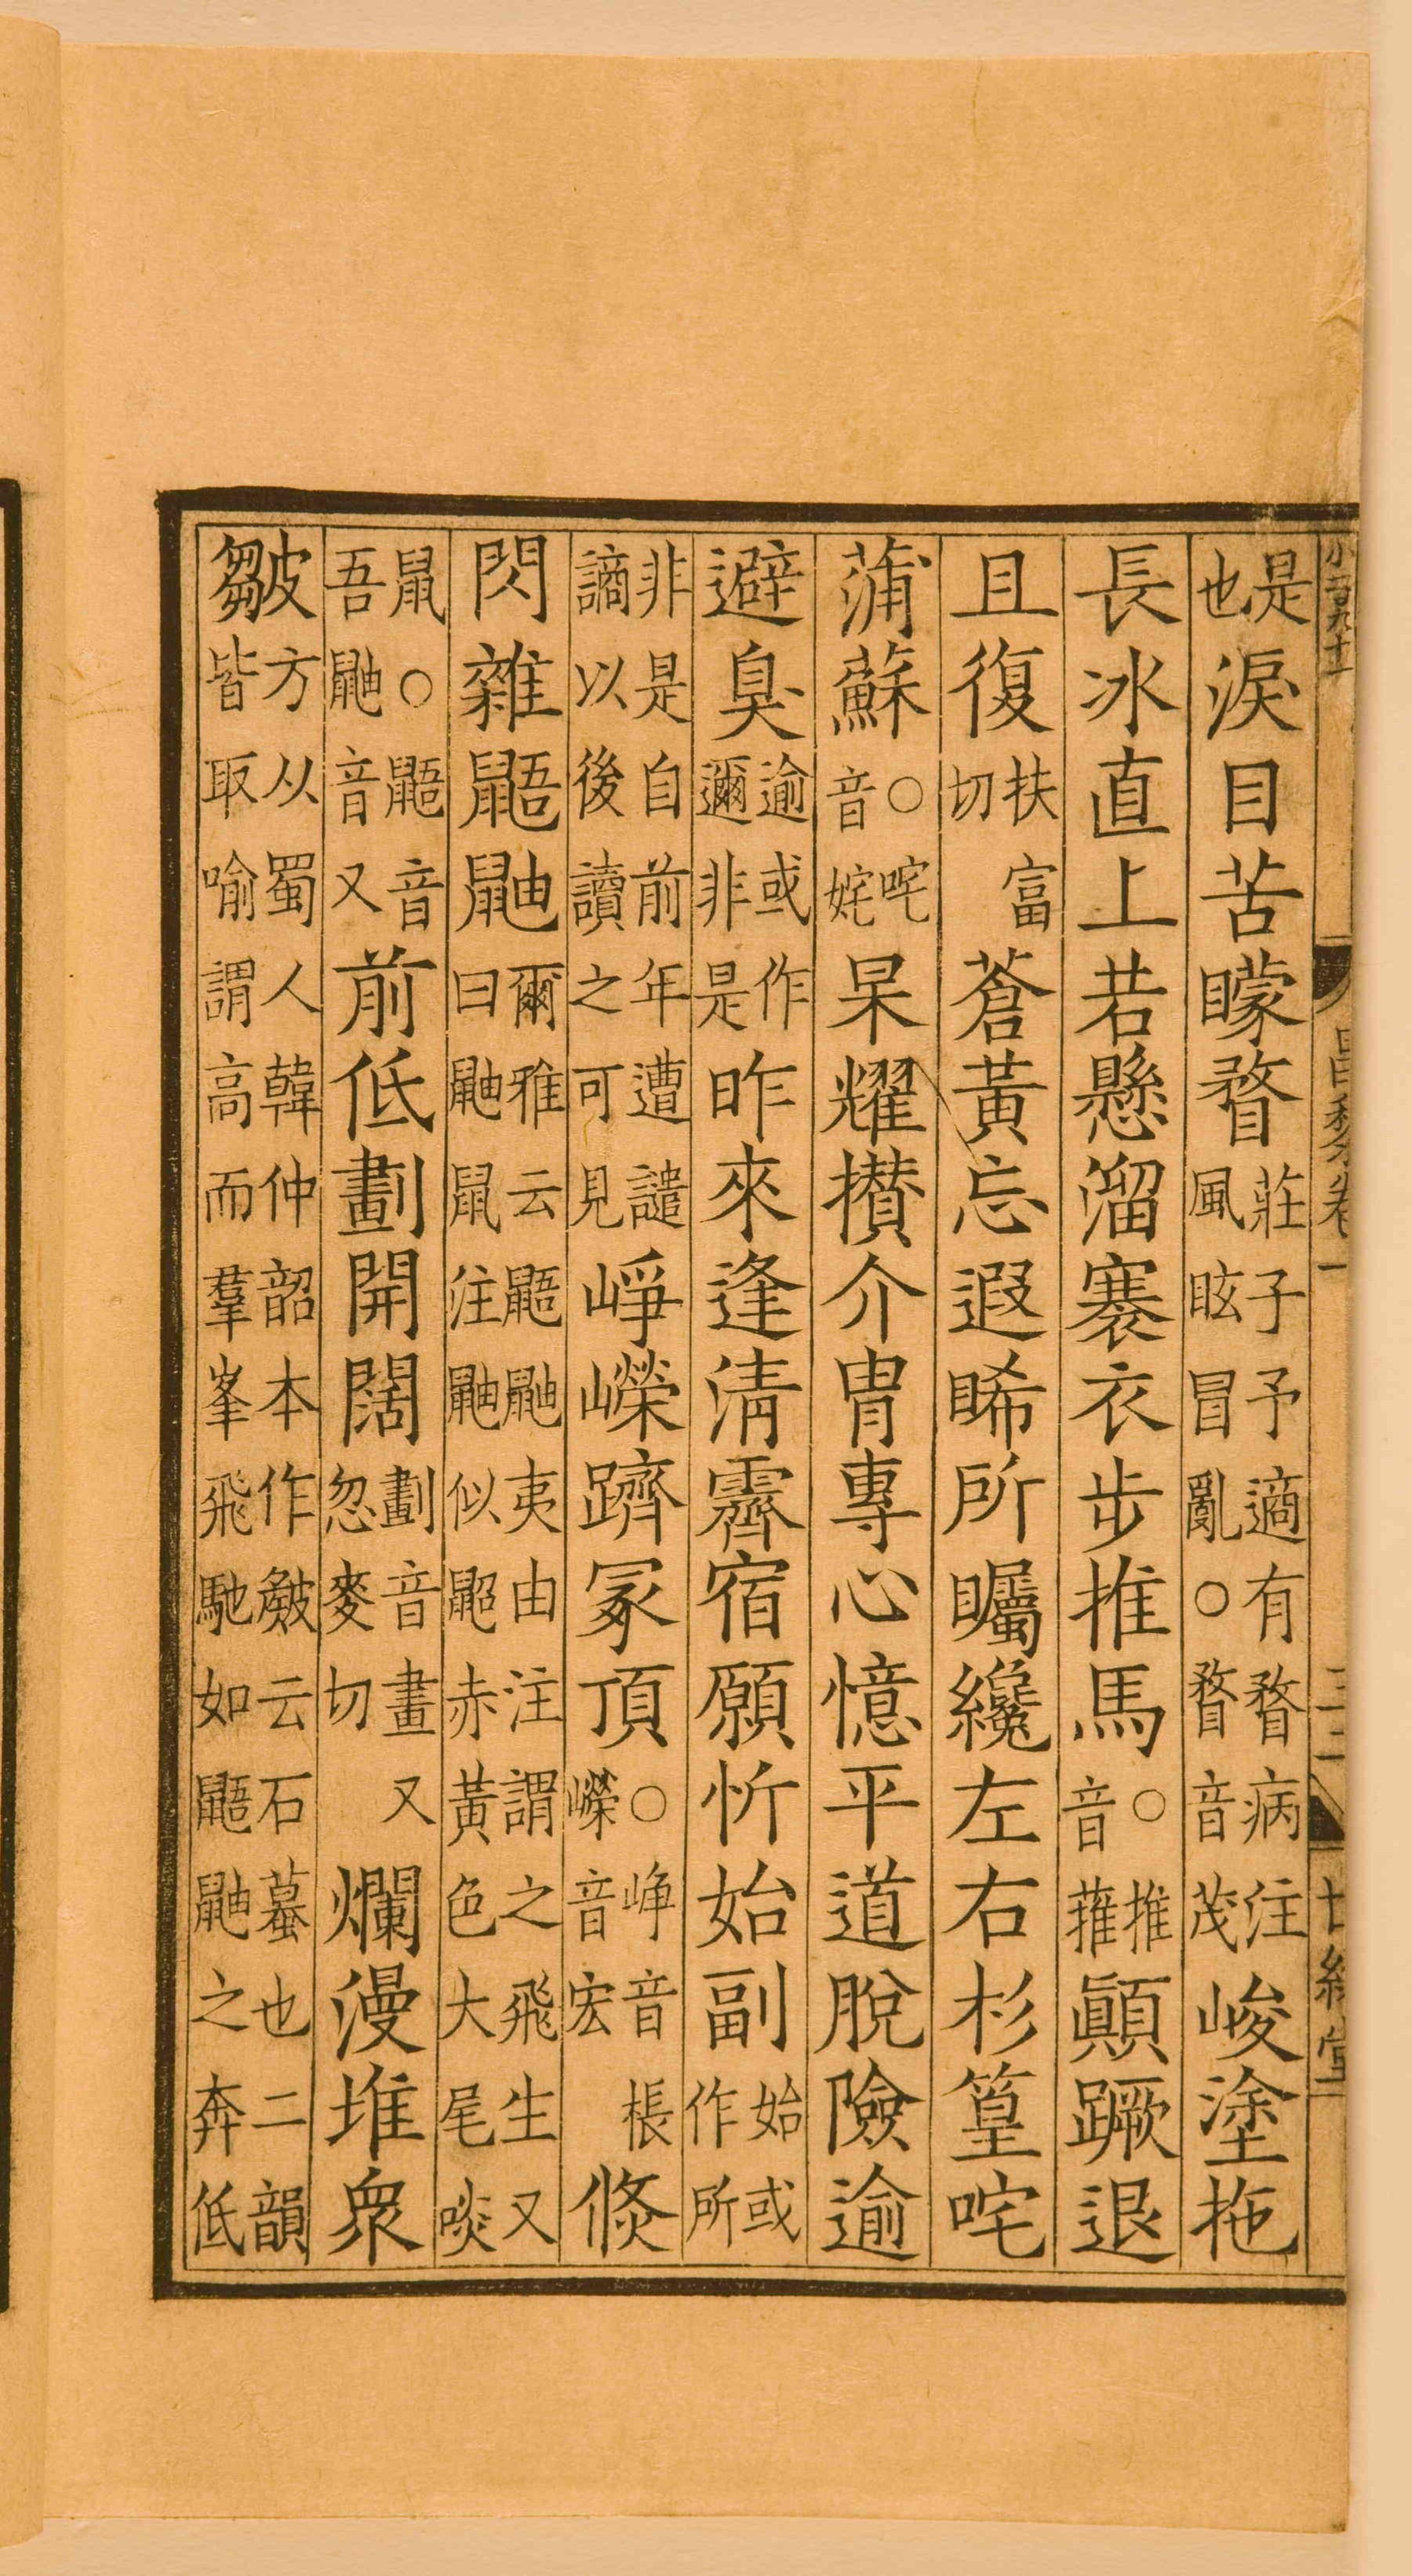 是也淚目苦矇瞀莊子予適有瞀病注風眩冒亂○瞀音茂峻塗拖
長冰直上若懸溜褰衣步推馬○推音蓷顚蹶退
且復扶富切蒼黃忘遐睎所矚纔左右杉篁咤
蒲蘇○咤音姹杲耀攅介冑專心憶平道脫險逾
避臭逾或作邇非是昨來逢淸霽宿願忻始副始或作所
非是自前年遭譴謫以後讀之可見崢嶸躋冢頂○崢音棖嶸音宏倐
閃雜鼯鼬爾雅云鼯鼬夷由注謂之飛生又曰鼬鼠注鼬似鼦赤黃色大尾啖
鼠○鼯音吾鼬音又前低劃開闊劃音畫又忽麥切爛漫堆衆
皺方从蜀人韓仲韶本作云石也二韻皆取喻謂高而羣峯飛馳如鼯鼬之奔低
昌黎卷一